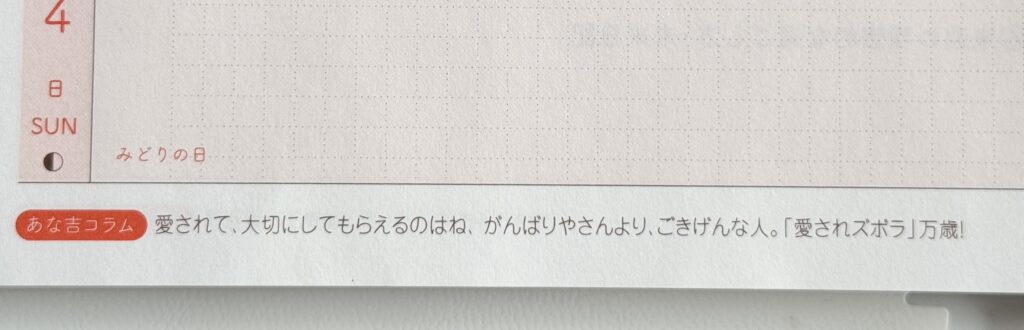 4
日
SUN
みどりの日
あな吉コラム 愛されて、大切にしてもらえるのはね、がんばりやさんより、ごきげんな人。「愛されズボラ」万歳!